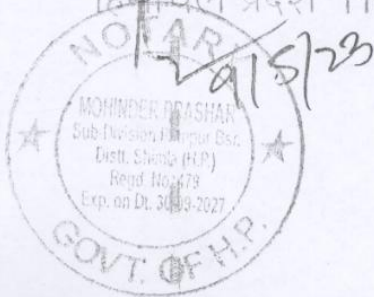 हिमाचल प्रदेश
NOTARY
9/5/23
MOHINDER PRASHAR
Sub-Division Rampur Bsr.
Distt. Shimla (H.P.)
Regd. No. 479
Exp. on Dt. 30-09-2027
GOVT. OF H.P.